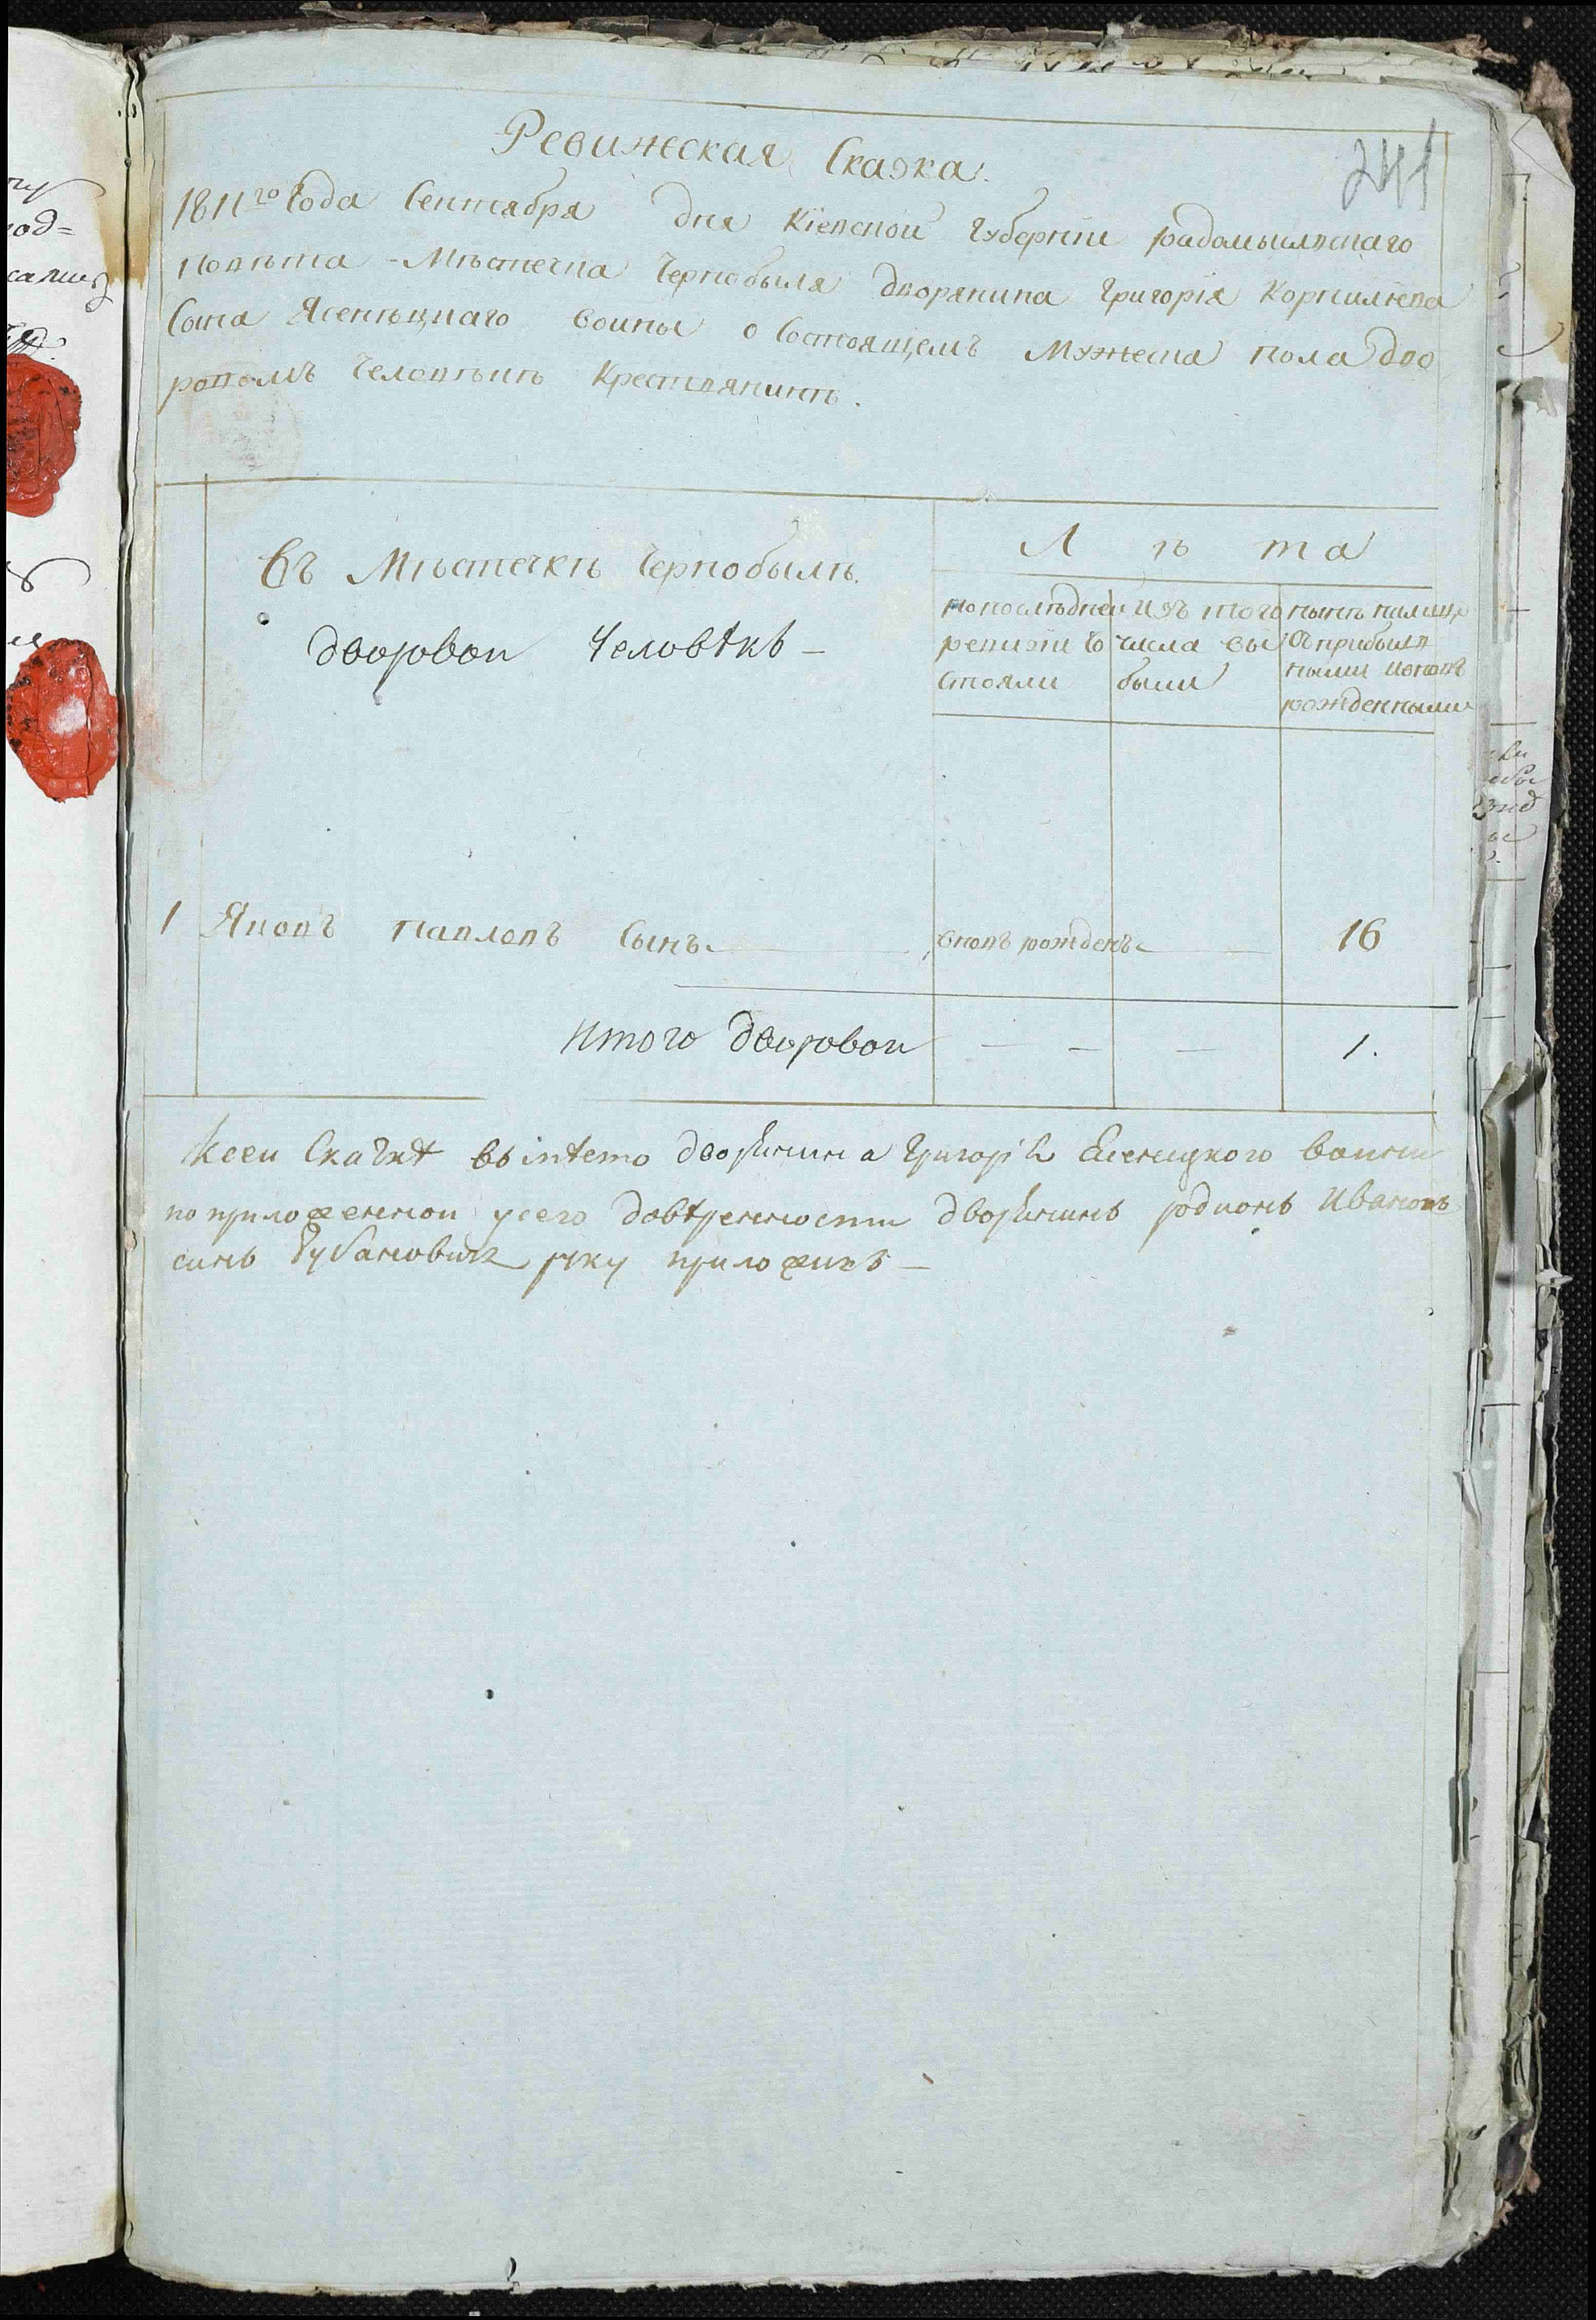 241
Ревижская Сказка.
1811го Года Сентября дня Кіевской Губерніи радомыслскаго
повѣта - Мѣстечка Чернобыля дворянина Григорія Корнилiева
Сына Ясенѣцкаго воины о Состоящемъ Мужеска пола дво
ровомъ Человѣкѣ Крестиянинѣ.
Въ Мѣстечкѣ Чернобылѣ.
дворовои Человѣкъ –
Л ѣ та
попослѣднеи
ревизіи Со
стояли
Изъ того
числа вы
были
нынѣ налицо
Сприбыл
ными ивновь
рожденными
1 Яковъ Павловъ Сынъ вновь рожденъ 16
Итого дворовои — — — 1.
Ксеи Сказкѣ вьіnѣсто дворянина Григорія Есеницкого воини
по приложеннои усего довѣренности дворянинъ родионъ Ивановъ
синъ Рубановичъ руку приложилъ –